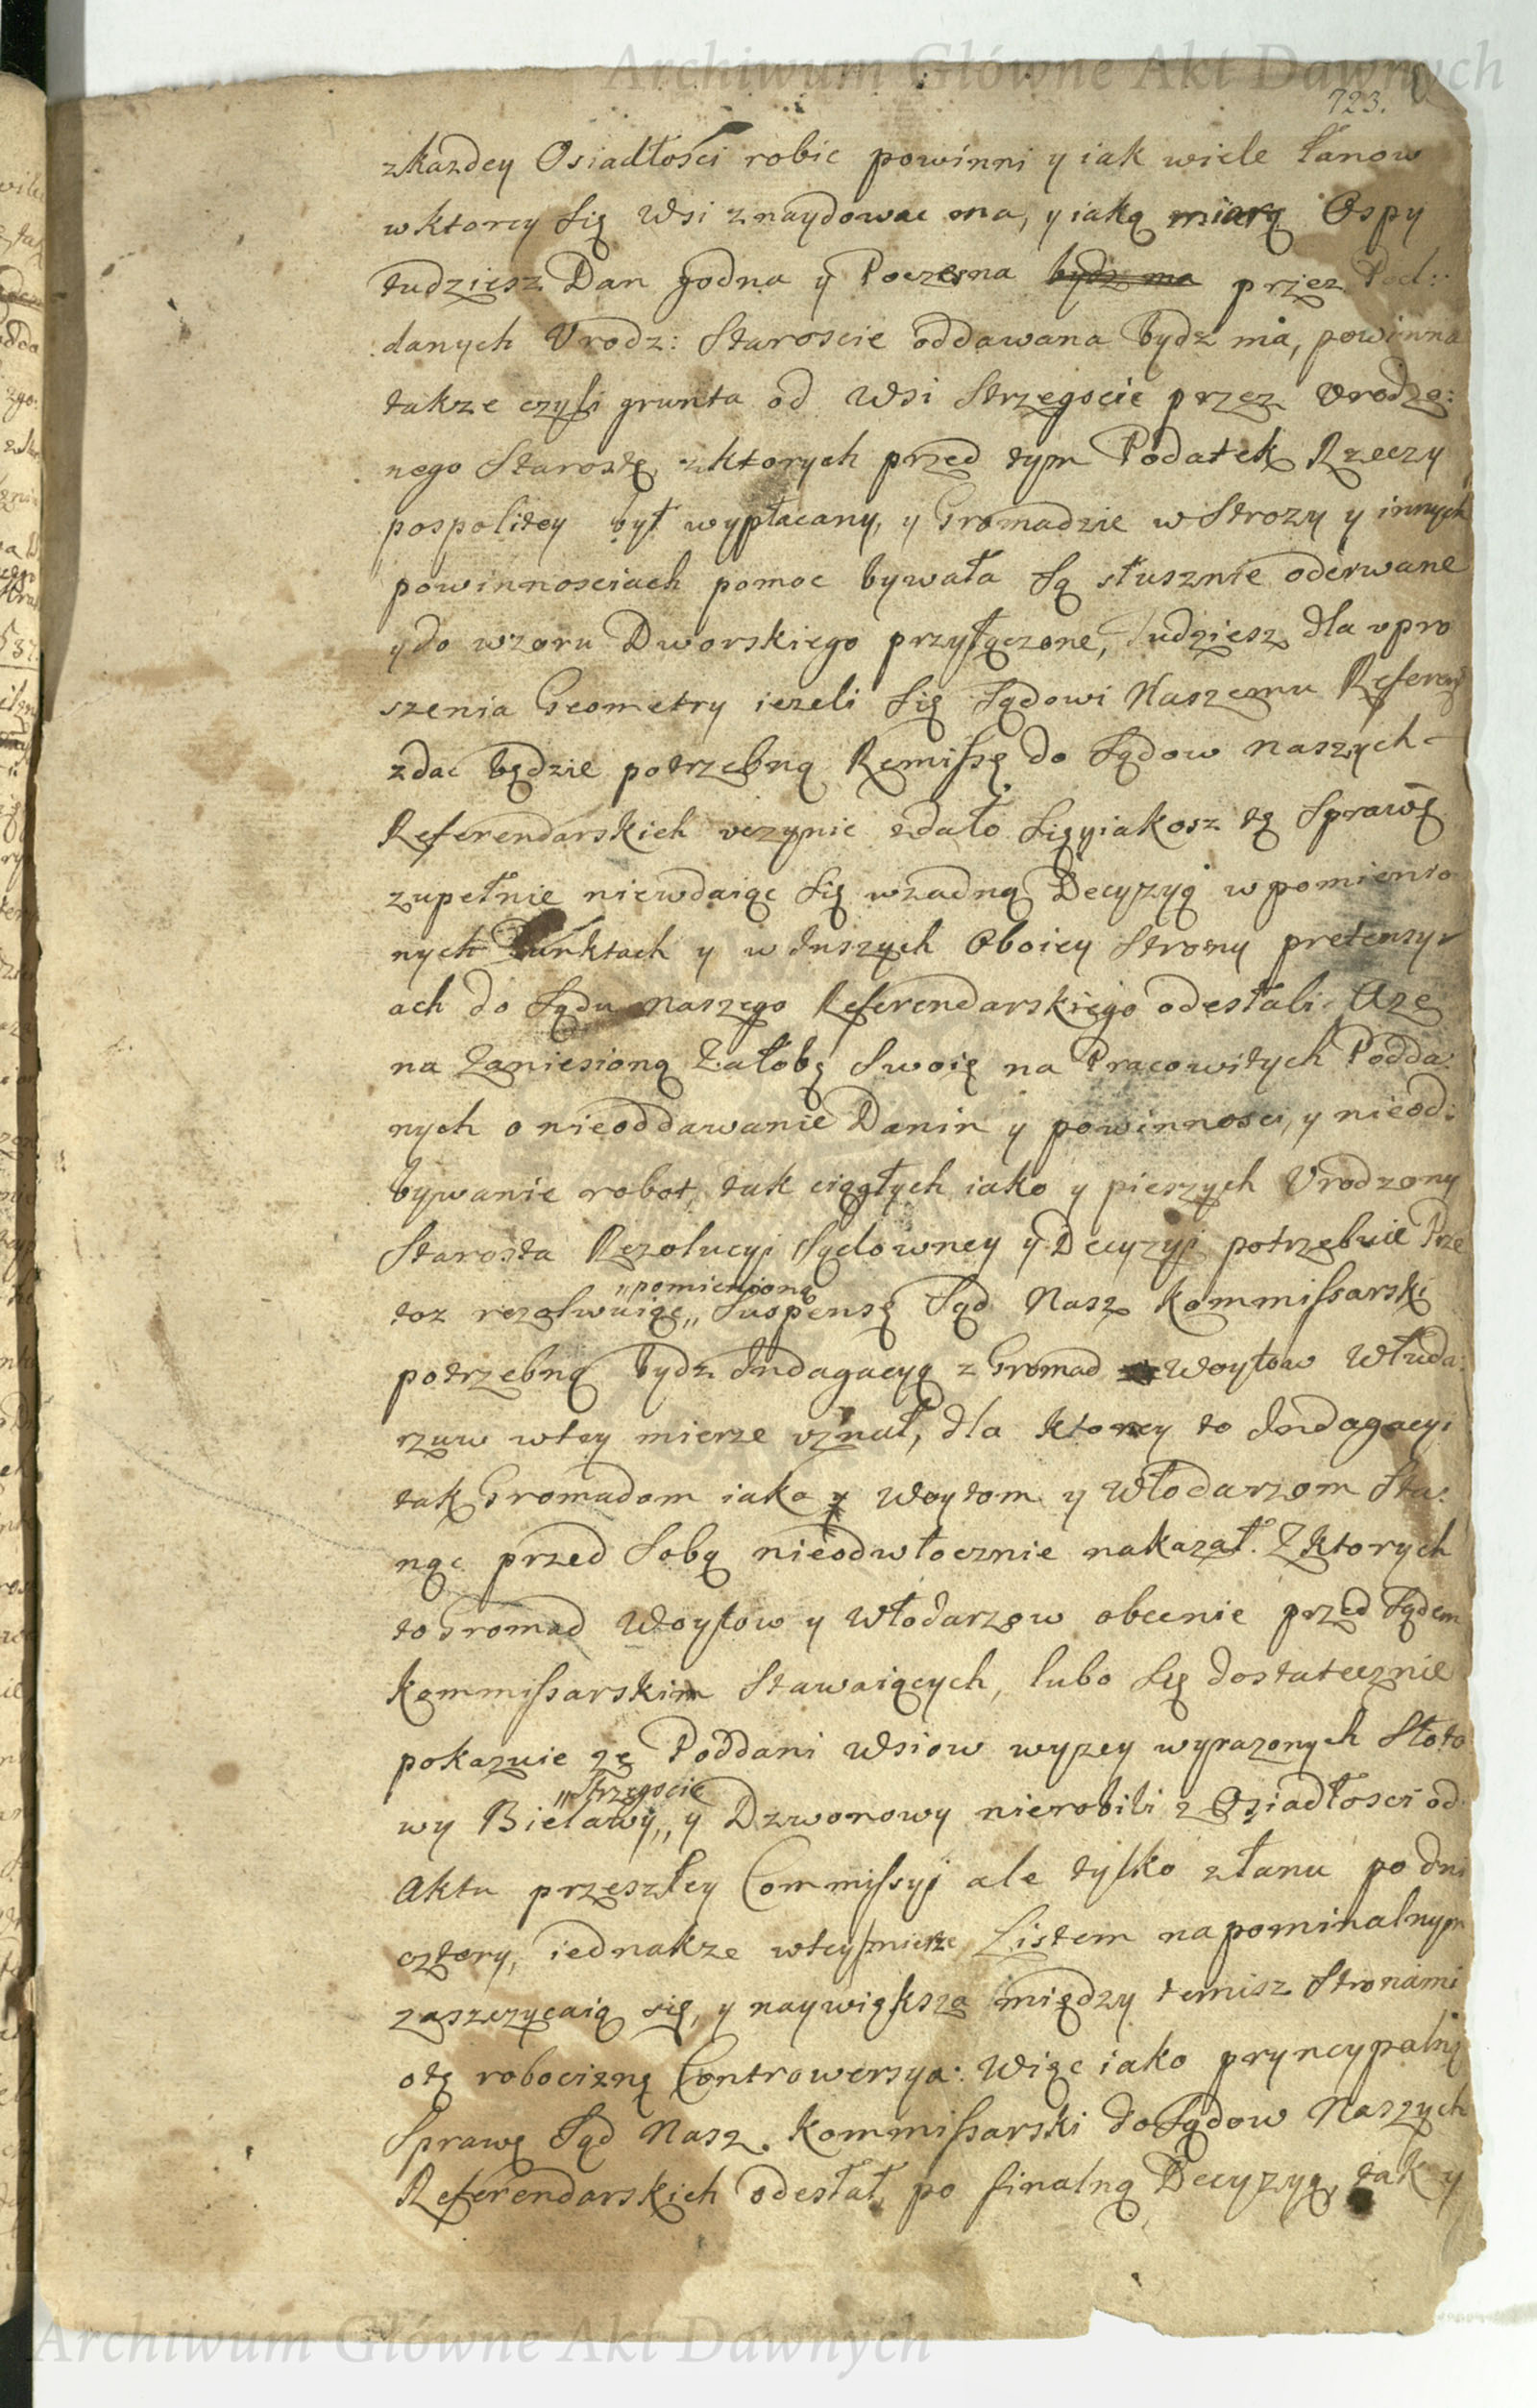 Archiwum Główne Akt Dawnych
723.
zkazdey Osiadłości robic powinni y iak wiele Łanow
wktorey Się Wsi znaydowac ma, y iaką miarą Ospy
tudziesz Dan godna y Poczesna bydz ma przez Pod:
danych Urodz: Staroscie oddawana bydz ma, powinna
takze czyli grunta od Wsi Strzegocie przez Urodzo:
nego Starostę zktorych przed tym Podatek Rzeczy
pospolitey był wypłacany, y Gromadzie wStrozy y innych
powinnosciach pomoc bywała Są słusznie oderwane
ydo wzoru Dworskiego przyłączone, Tudziesz dla upro
szenia Geometry iezeli Się Sądowi Naszemu Referen
zdac będzie potrzebną Remissę do Sądow Naszych
Referendarskich uczynic zdało Się yiakosz tę Sprawę
zupełnie niewdaiąc Się wzadną Decyzyą wpomienio
nych Punktach y wduszych Oboiey Strony pretensy
ach do Sądu Naszego Referendarskiego odesłali Aze
na Zaniesioną Załobę Swoię na Pracowitych Podda:
nych o nieoddawanie Danin y powinnosci, y nieod:
bywanie robot tak ciągłych iako y pieszych Urodzony
Starosta Rezolucyi Sądowney y Decyzyi potrzebuie Prze
toz rezolwuiąc „ Suspensę Sąd Nasz Kommissarski
„pomienioną
potrzebną bydz Indagacyą z Gromad Woytow Włuda:
rzuw wtey mierze uznał, dla ktorey to Indagacyi
tak Gromadom iako y Woytom y Włodarzom Sta:
nąc przed Sobą nieodwłocznie nakazał. Zktorych
to Gromad Woytow y Włodarzow obecnie przed Sądem
Kommissarskim Stawaiących, lubo Się dostatecznie
pokazuie ze Poddani Wsiow wyzey wyrazonych Słoto
wy Bielawy „ y Dzwonowy nierobili z Osiadłosci od
„Strzegocie
Aktu przeszłey Commissyi ale tylko złanu po dni
cztery, iednakze wteyzmierze Listem napominalnym
zaszczycaią się, y naywiększa między temisz Stronami
otę robociznę Controwersya: Więc iako pryncypalną
Sprawę Sąd Nasz Kommissarski doSądow Naszych
Referendarskich odesłał po finalną Decyzyą, tak y
Archiwum Główne Akt Dawnych